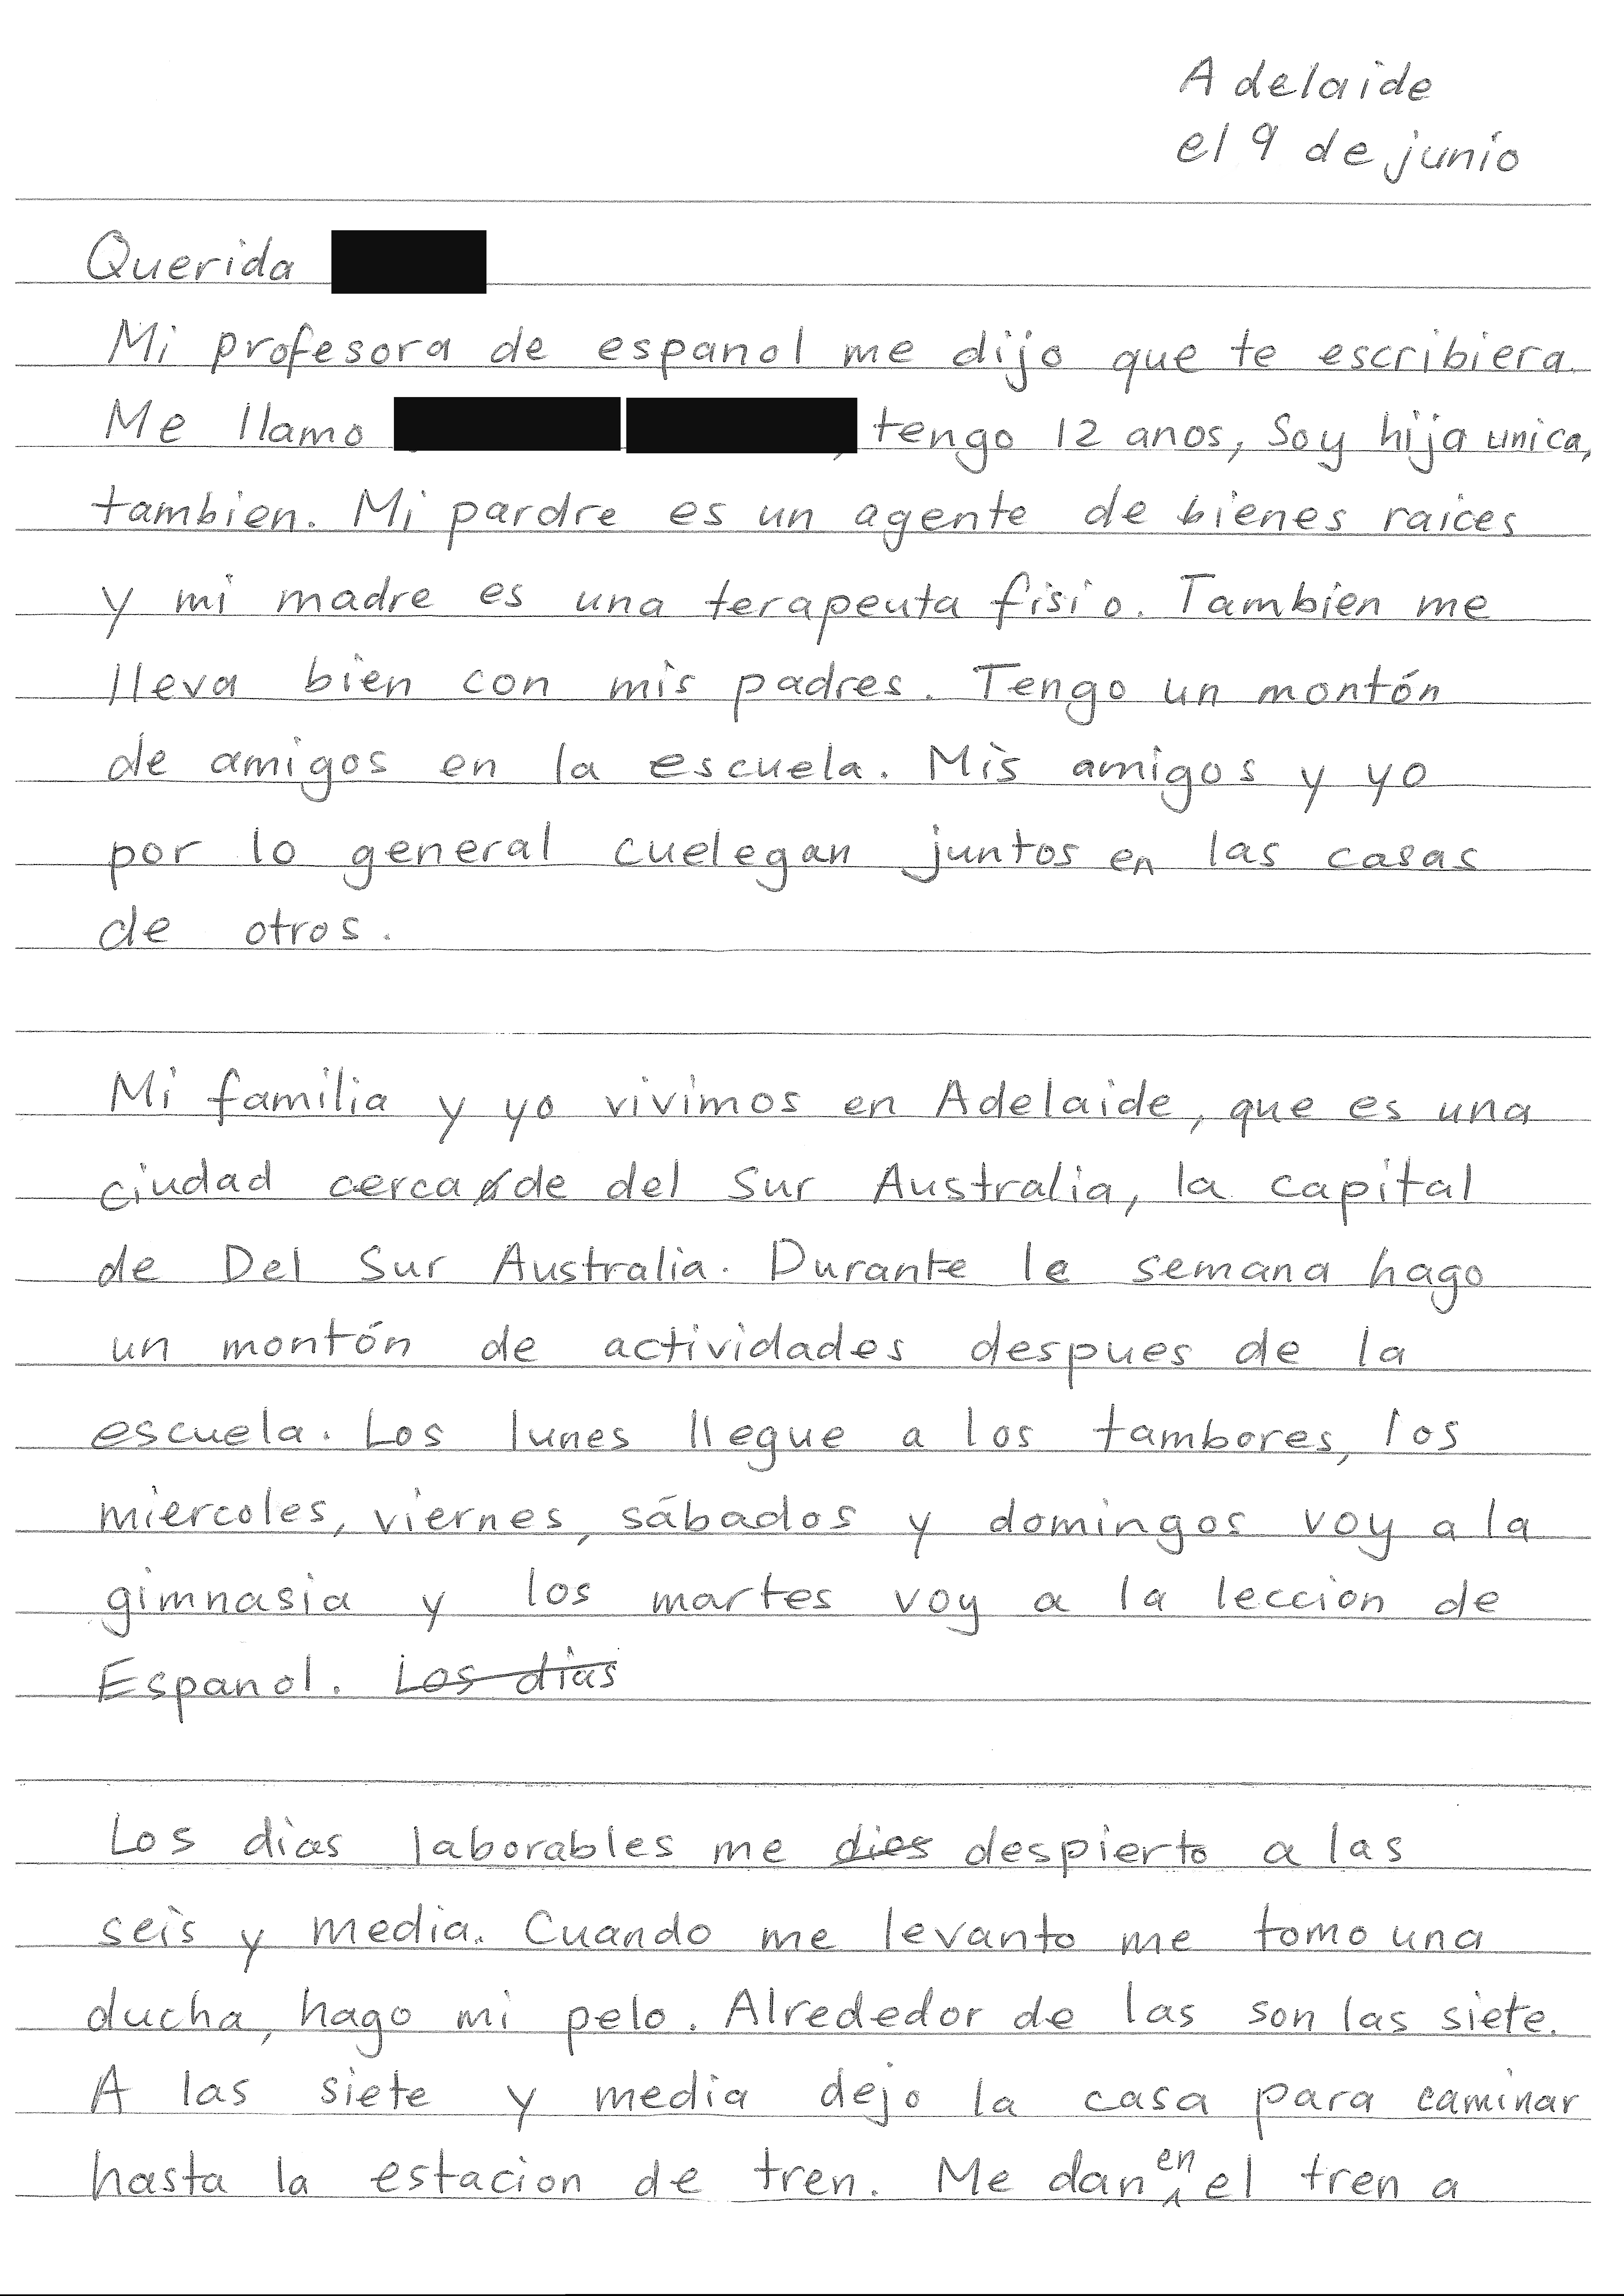 Adelaide
el 9 de junio
Querida
Mi profesora de espanol me dijo que te escribiera.
Me llamo , tengo 12 anos, Soy hija unica,
tambien. Mi pardre es un agente de bienes raices
y mi madre es una terapeuta fisio. Tambien me
lleva bien con mis padres. Tengo un montón
de amigos en la escuela. Mis amigos y yo
por lo general cuelegan juntos en las casas
de otros.
Mi familia y yo vivimos en Adelaide, que es una
ciudad cerca de del Sur Australia, la capital
de Del Sur Australia. Durante la semana hago
un montón de actividades despues de la
escuela. Los lunes llegue a los tambores, los
miercoles, viernes, sábados y domingos voy a la
gimnasia y los martes voy a la leccion de
Espanol. Los dias
Los dias laborables me dies despierto a las
seis y media. Cuando me levanto me tomo una
ducha, hago mi pelo. Alrededor de las son las siete.
A las siete y media dejo la casa para caminar
hasta la estacion de tren. Me dan en el tren a